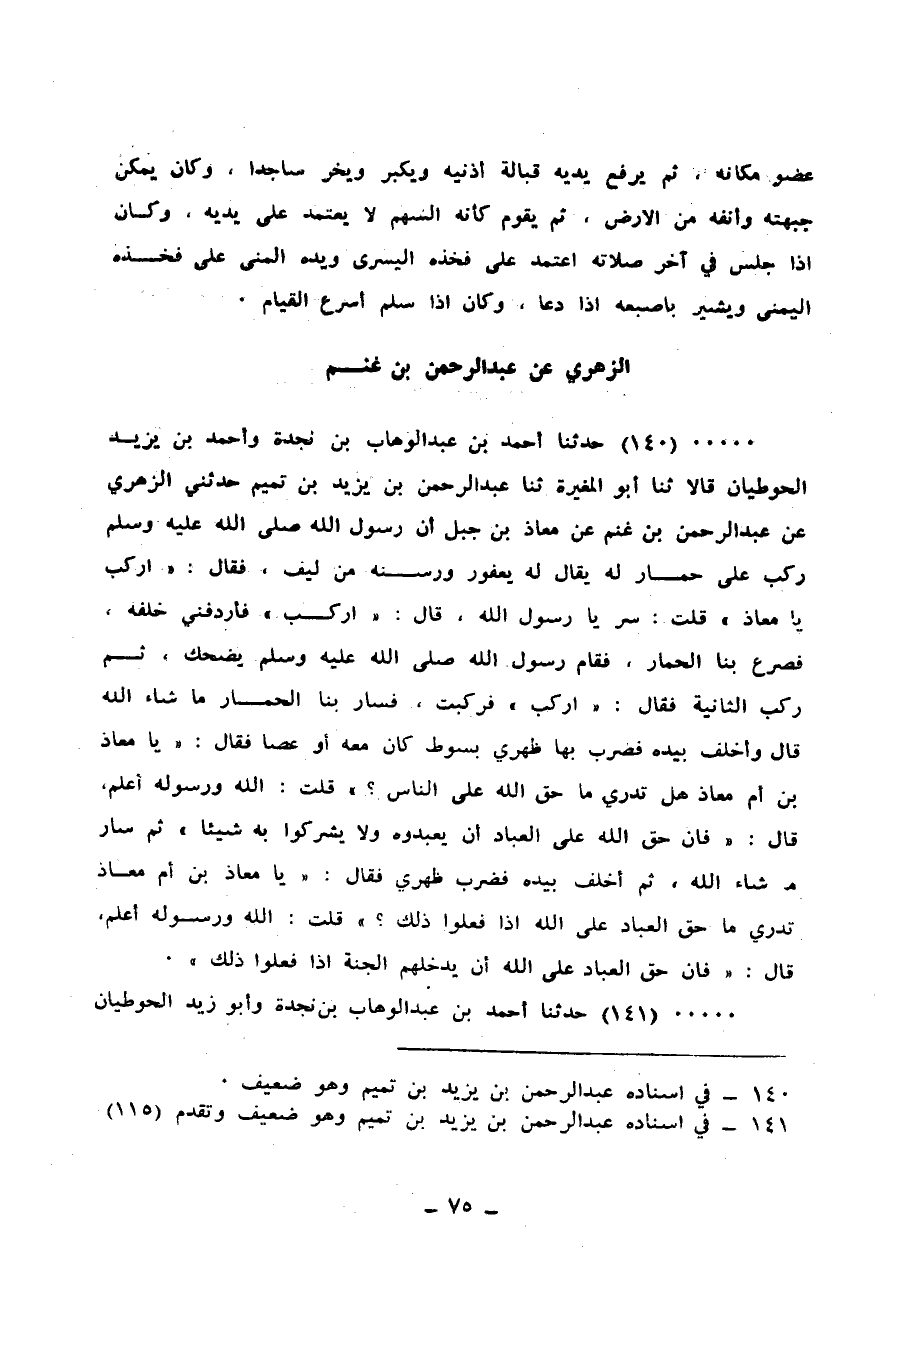 عضو مكانه ، ثم يرفع يديه قبالة أذنيه ويكبر ويخر ساجدا ، وكان يمكن
جبهته وأنفه من الارض ، ثم يقوم كأنه السهم لا يعتمد على يديه ، وكـان
اذا جلس في آخر صلاته اعتمد على فخذه اليسرى ويده المنى على فخــذه
اليمنى ويشير باصبعه اذا دعا ، وكان اذا سلم أسرع القيام ٠
الزهري عن عبدالرحمن بن غنــم
٠٠٠٠٠ (١٤٠) حدثنا أحمد بن عبدالوهاب بن نجدة وأحمد بن يزيــد
الحوطيان قالا ثنا أبو المغيرة ثنا عبدالرحمن بن يزيد بن تميم حدثني الزهري
عن عبدالرحمن بن غنم عن معاذ بن جبل أن رسول الله صلى الله عليه وسلم
ركب على حمــار له يقال له يعفور ورســنه من ليف ، فقال : « اركب
يا معاذ » قلت : سر يا رسول الله ، قال : « اركــب » فأردفني خلفه ،
فصرع بنا الحمار ، فقام رسول الله صلى الله عليه وسلم يضحك ، ثــم
ركب الثانية فقال : « اركب » فركبت ، فسار بنا الحمــار ما شاء الله
قال وأخلف بيده فضرب بها ظهري بسوط كان معه أو عصا فقال : « يا معاذ
بن أم معاذ هل تدري ما حق الله على الناس ؟ » قلت : الله ورسوله أعلم،
قال : « فان حق الله على العباد أن يعبدوه ولا يشركوا به شيئا » ثم سار
مـ شاء الله ، ثم أخلف بيده فضرب ظهري فقال : « يا معاذ بن أم معـاذ
تدري ما حق العباد على الله اذا فعلوا ذلك ؟ » قلت : الله ورسـوله أعلم،
قال : « فان حق العباد على الله أن يدخلهم الجنة اذا فعلوا ذلك » ٠
٠٠٠٠٠ (١٤١) حدثنا أحمد بن عبدالوهاب بن نجدة وأبو زيد الحوطيان
١٤٠ ــ في اسناده عبدالرحمن بن يزيد بن تميم وهو ضعيف ٠
١٤١ ــ في اسناده عبدالرحمن بن يزيد بن تميم وهو ضعيف وتقدم (١١٥)
ــ ٧٥ ــ